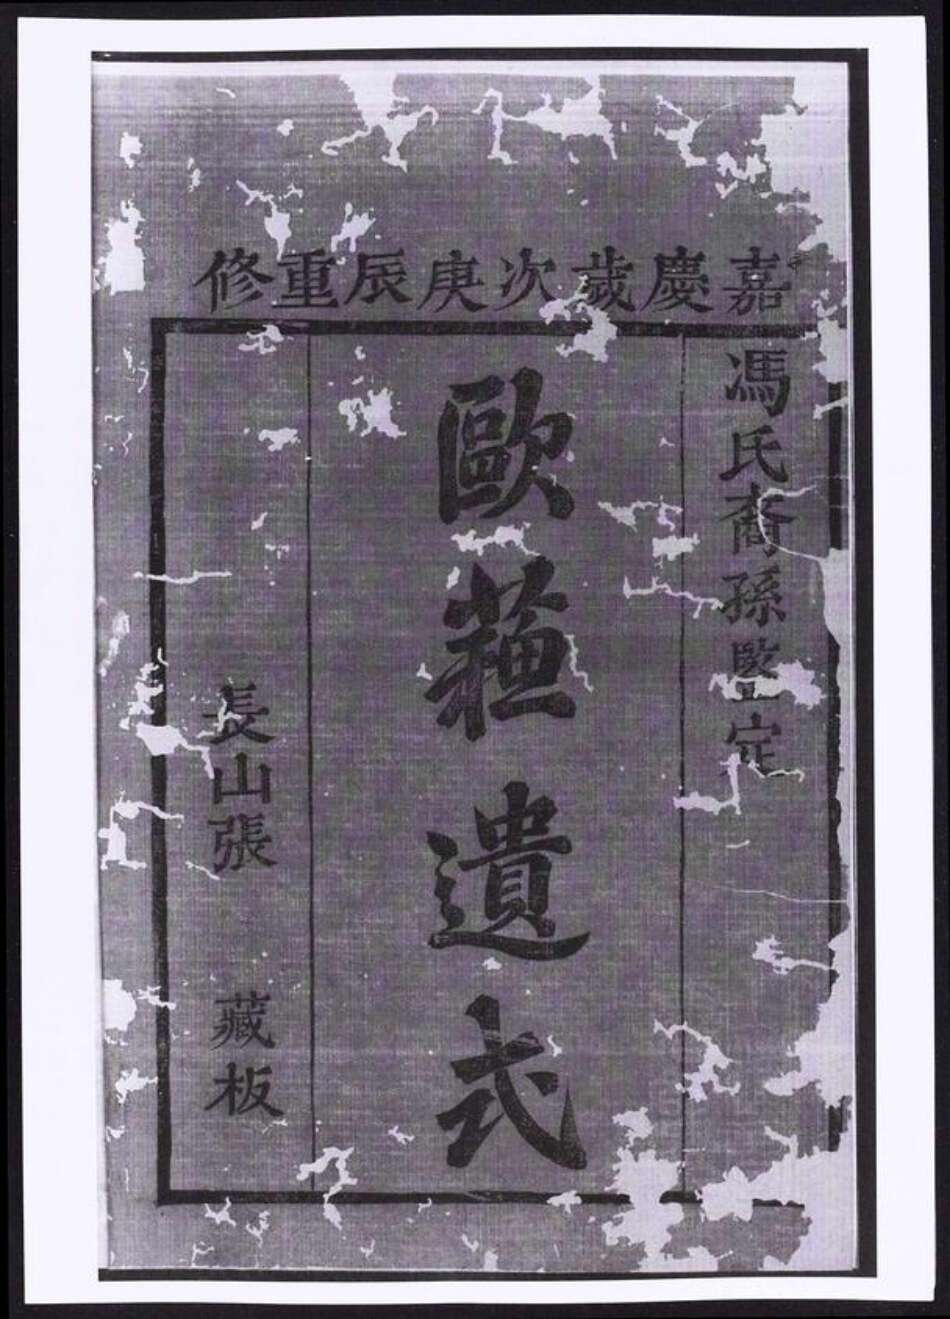 嘉慶歲次庚辰重修
馮氏裔孫鑒定
歐蘓遺式
長山張
藏板